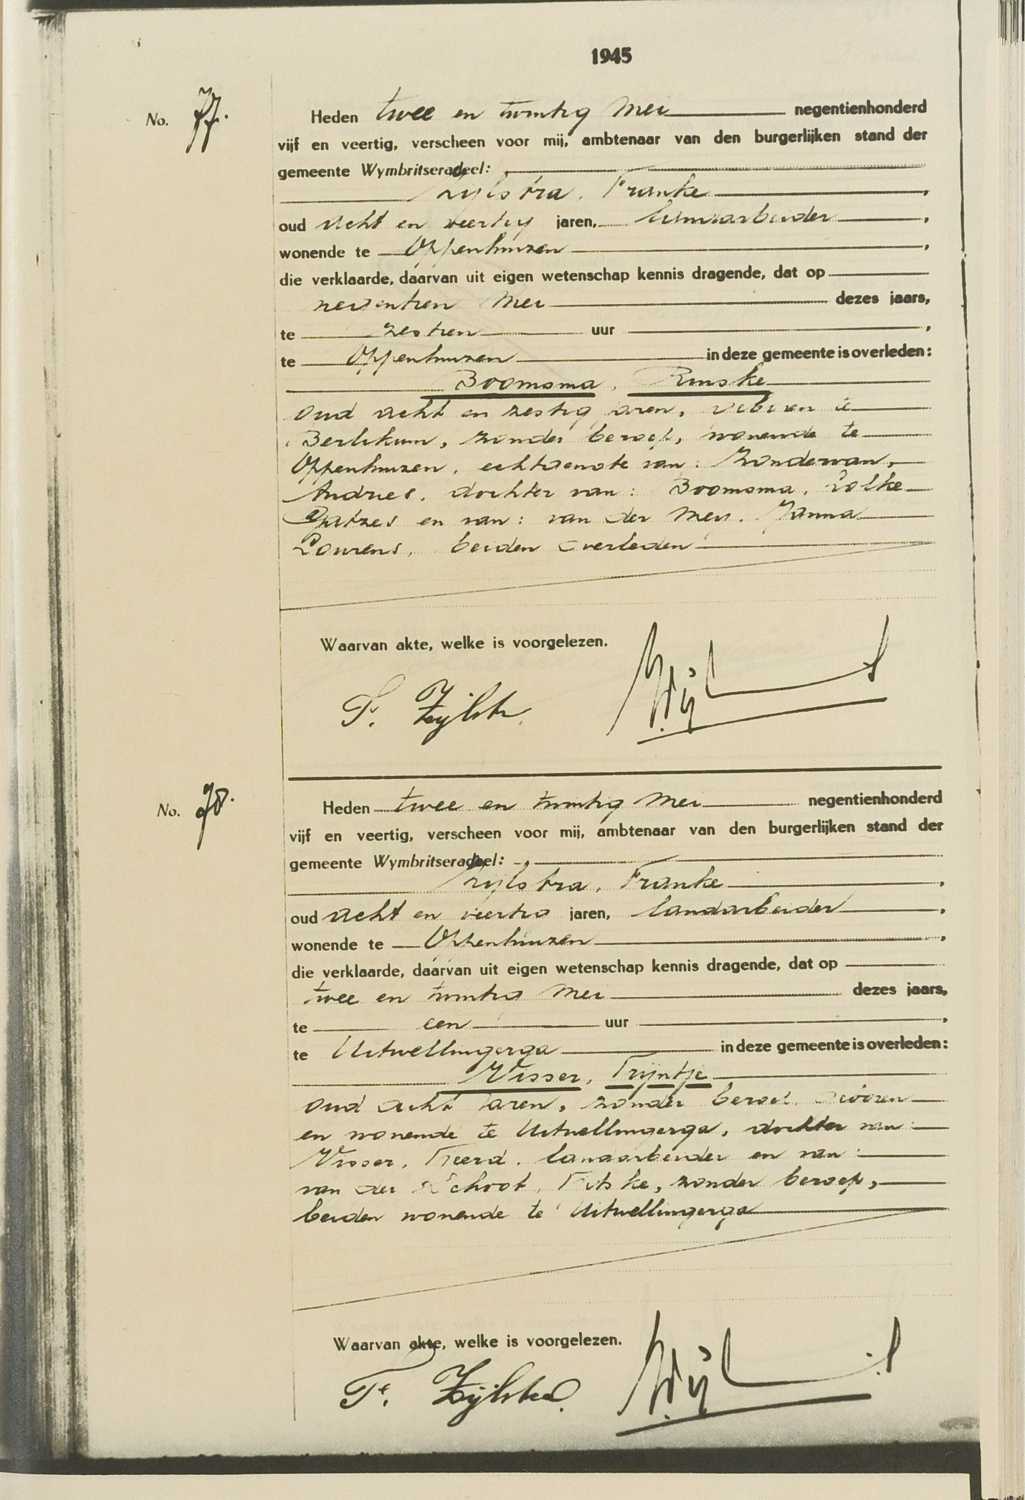 1945
No. 77.
Heden twee en twintig Mei negentienhonderd
vijf en veertig, verscheen voor mij, ambtenaar van den burgerlijken stand der
gemeente Wymbritseradeel:
Zijlstra, Franke
oud acht en veertig jaren, landarbeider
wonende te Oppenhuizen
die verklaarde, daarvan uit eigen wetenschap kennis dragende, dat op
negentien Mei dezes jaars,
te zestien uur
te Oppenhuizen in deze gemeente is overleden:
Boomsma, Rinske
oud acht en zestig jaren, geboren te
Berlikum, zonder beroep, wonende te
Oppenhuizen, echtgenote van: Zondervan,
Andries, dochter van: Boomsma, Folke
Gatzes en van: van der Meij, Janna
Lourens, beiden overleden
Waarvan akte, welke is voorgelezen.
F. Zijlstra.
No. 78.
Heden twee en twintig Mei negentienhonderd
vijf en veertig, verscheen voor mij, ambtenaar van den burgerlijken stand der
gemeente Wymbritseradeel:
Zijlstra, Franke
oud acht en veertig jaren, landarbeider
wonende te Oppenhuizen
die verklaarde, daarvan uit eigen wetenschap kennis dragende, dat op
twee en twintig Mei dezes jaars,
te een uur
te Uitwellingerga in deze gemeente is overleden:
Visser, Trijntje
oud acht jaren, zonder beroep, geboren
en wonende te Uitwellingerga, dochter van:
Visser, Tjeerd, landarbeider en van:
van der Schoot, Fetske, zonder beroep,
beiden wonende te Uitwellingerga
Waarvan akte, welke is voorgelezen.
F. Zijlstra.